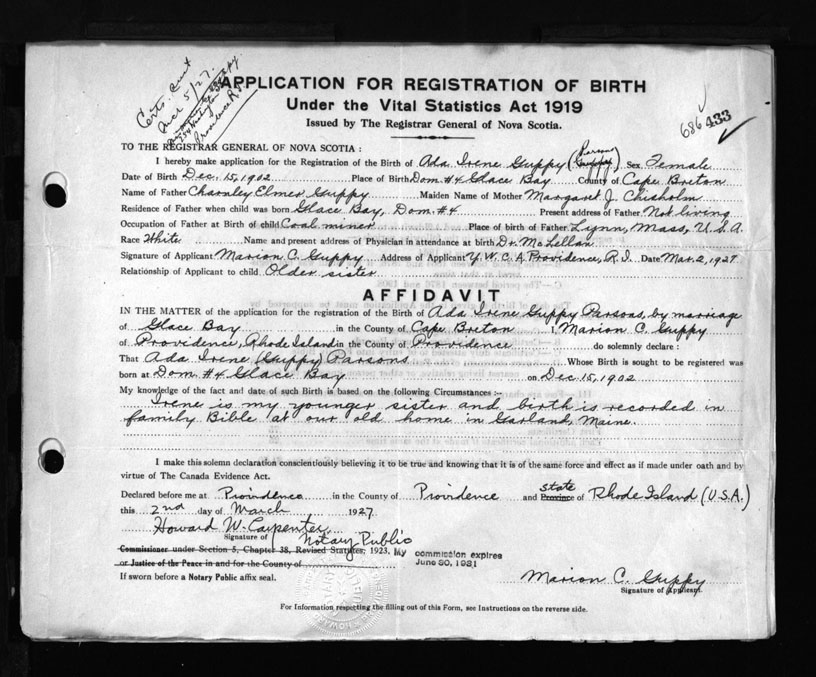 Certs. sent
Mar 5/27.
Providence R.I.
APPLICATION FOR REGISTRATION OF BIRTH
Under the Vital Statistics Act 1919
Issued by The Registrar General of Nova Scotia.
686433
TO THE REGISTRAR GENERAL OF NOVA SCOTIA :
I hereby make application for the Registration of the Birth of Ada Irene Guppy (Parsons Guppy) Sex Female
Date of Birth Dec. 15, 1902 Place of Birth Dom #4 Glace Bay County of Cape Breton
Name of Father Charnley Elmer Guppy Maiden Name of Mother Margaret J. Chisholm
Residence of Father when child was born Glace Bay, Dom. #4 Present address of Father Not living
Occupation of Father at Birth of child Coal miner Place of birth of Father Lynn, Mass, U.S.A.
Race White Name and present address of Physician in attendance at birth Dr. McLellan
Signature of Applicant Marion C. Guppy Address of Applicant Y.W.C.A. Providence, R.I. Date Mar. 2, 1927
Relationship of Applicant to child Older sister
AFFIDAVIT
IN THE MATTER of the application for the registration of the Birth of Ada Irene Guppy Parsons, by marriage
of Glace Bay in the County of Cape Breton I, Marion C. Guppy
of Providence, Rhode Island in the County of Providence do solemnly declare :
That Ada Irene (Guppy) Parsons Whose Birth is sought to be registered was
born at Dom #4 Glace Bay on Dec. 15, 1902
My knowledge of the fact and date of such Birth is based on the following Circumstances :–
Irene is my younger sister and birth is recorded in
family Bible at our old home in Garland, Maine.
I make this solemn declaration conscientiously believing it to be true and knowing that it is of the same force and effect as if made under oath and by
virtue of The Canada Evidence Act.
Declared before me at Providence in the County of Providence and state Province of Rhode Island (U.S.A.)
this 2nd day of March 1927.
Howard W. Carpenter
Signature of Notary Public
Commissioner under Section 5, Chapter 38, Revised Statutes, 1923, My commission expires
or Justice of the Peace in and for the County of June 30, 1931
If sworn before a Notary Public affix seal.
Marion C. Guppy
Signature of Applicant.
For Information respecting the filling out of this Form, see Instructions on the reverse side.